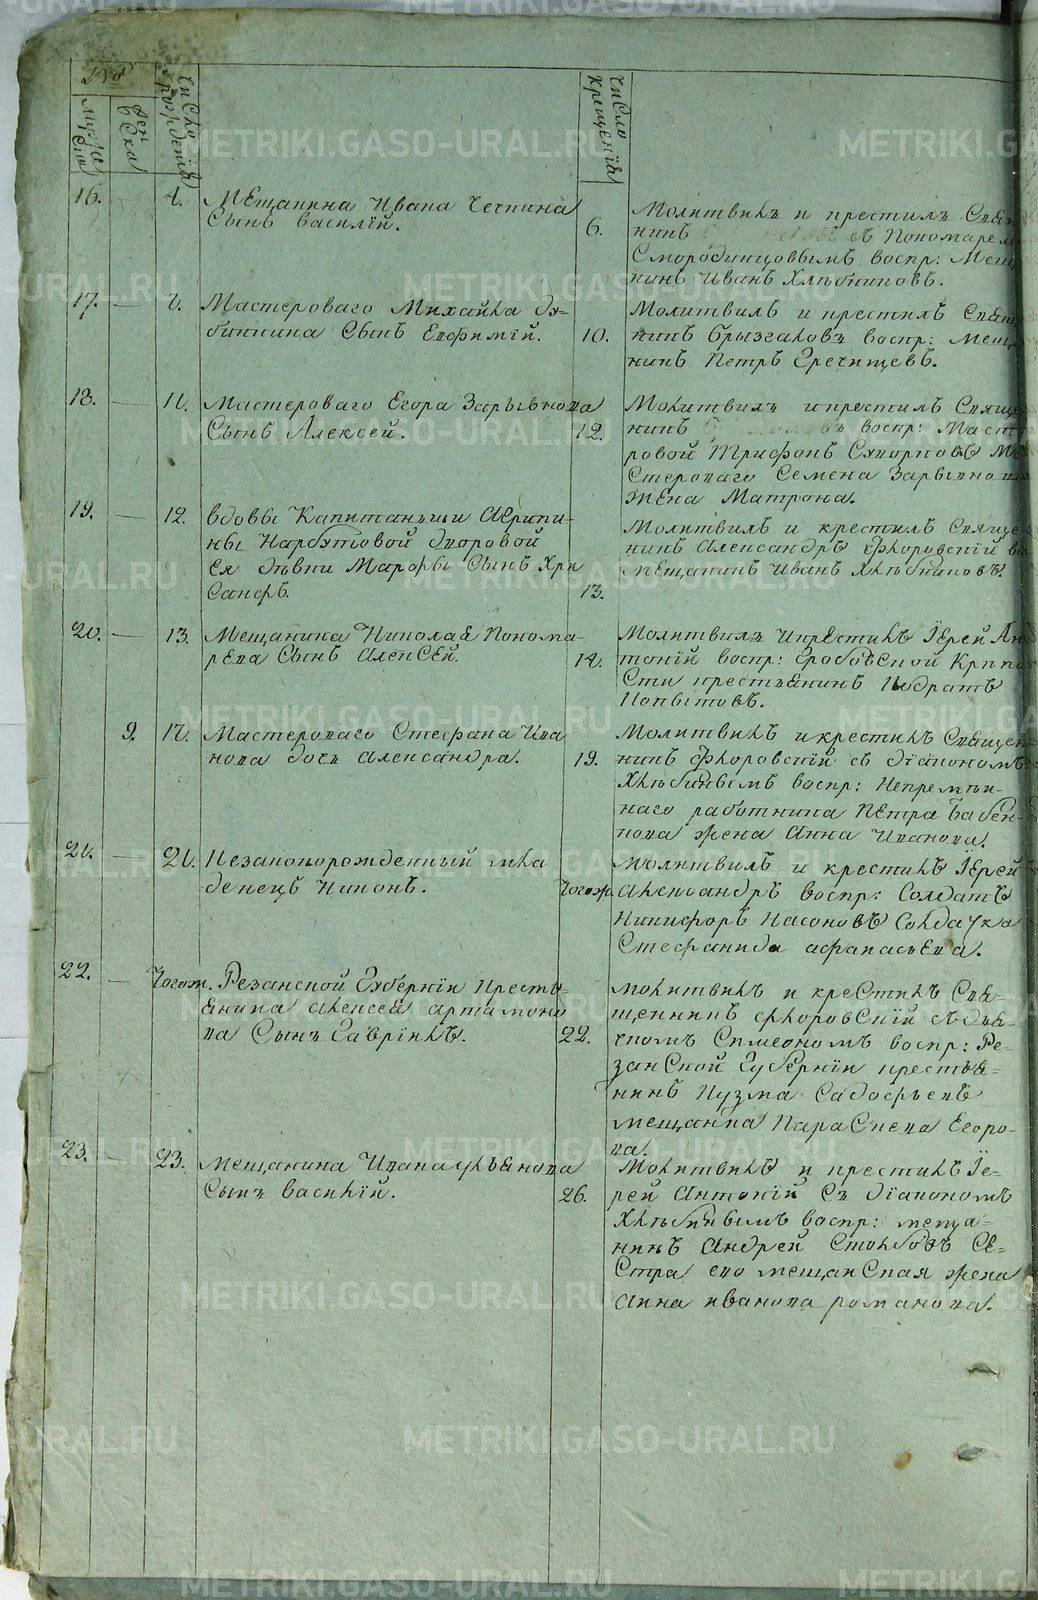 №
мужеска
женска
Число рожденія
Число Крещенія
16.
4.
Мещанина Ивана Чечкина
Сынъ Василій.
6.
Молитвилъ и крестилъ Свя
никъ съ Пономарем
Смородинцовымъ воспр: Мещ
нинъ Иванъ Хлѣбниковъ.
17. —
Мастероваго Михайла
Сынъ Евфимій.
10.
Молитвилъ и крестилъ Свя
никъ Брызгаловъ воспр: Меща
нинъ Петръ Гречищевъ.
18. —
11.
Мастероваго Егора Зарывнова
Сынъ Алексей.
12.
Молитвилъ и крестилъ Священ
никъ воспр: Масте
ровой Трифонъ Ма
стероваго Семена Зарывнова
жена Матрона.
19. —
12.
вдовы Капитанши Агрипи-
ны Нарбутовой дворовой
Ея дѣвки Марфы Сынъ Хри
санфъ.
13.
Молитвилъ и крестилъ Священ
никъ Александръ Флоровскій во
Мещанинъ Иванъ Хлѣбниковъ.
20. —
13.
Мещанина Николая Понома-
рева Сынъ Алексей.
14.
Молитвилъ и крестилъ Іерей Ан
тоній воспр: Гробовской Крѣпо
сти крестьянинъ Кодратъ
Копытовъ.
9.
17.
Мастероваго Стефана Ива
нова дочь Александра.
19.
Молитвилъ и крестилъ Священ
никъ Флоровскій съ діакономъ
Хлѣбинымъ воспр: Непремѣн-
наго работника Петра Бабен-
кова жена Анна Иванова.
21. —
21.
Незаконорожденный мла
денецъ Никонъ.
Тогож.
Молитвилъ и крестилъ Іерей
Александръ воспр: Солдатъ
Никифоръ Насоновъ Солдатка
Стефанида Афанасьева.
22. —
Тогож.
Резанской Губерніи Кресть-
янина Алексея Артамоно
ва Сынъ Гавріилъ.
22.
Молитвилъ и крестилъ Свя-
щенникъ Флоровскій съ дья-
чкомъ Симеономъ воспр: Ре-
занской Губерніи крестья-
нинъ Кузма Садофьевъ
мещанка Параскева Егоро-
ва.
23. —
23.
Мещанина Ивана Ульянова
Сынъ Василій.
26.
Молитвилъ и крестилъ Іе-
рей Антоній съ діакономъ
Хлѣбинымъ воспр: меща-
нинъ Андрей Столбовъ Се-
стра его мещанская жена
Анна Иванова Романова.
METRIKI.GASO-URAL.RU